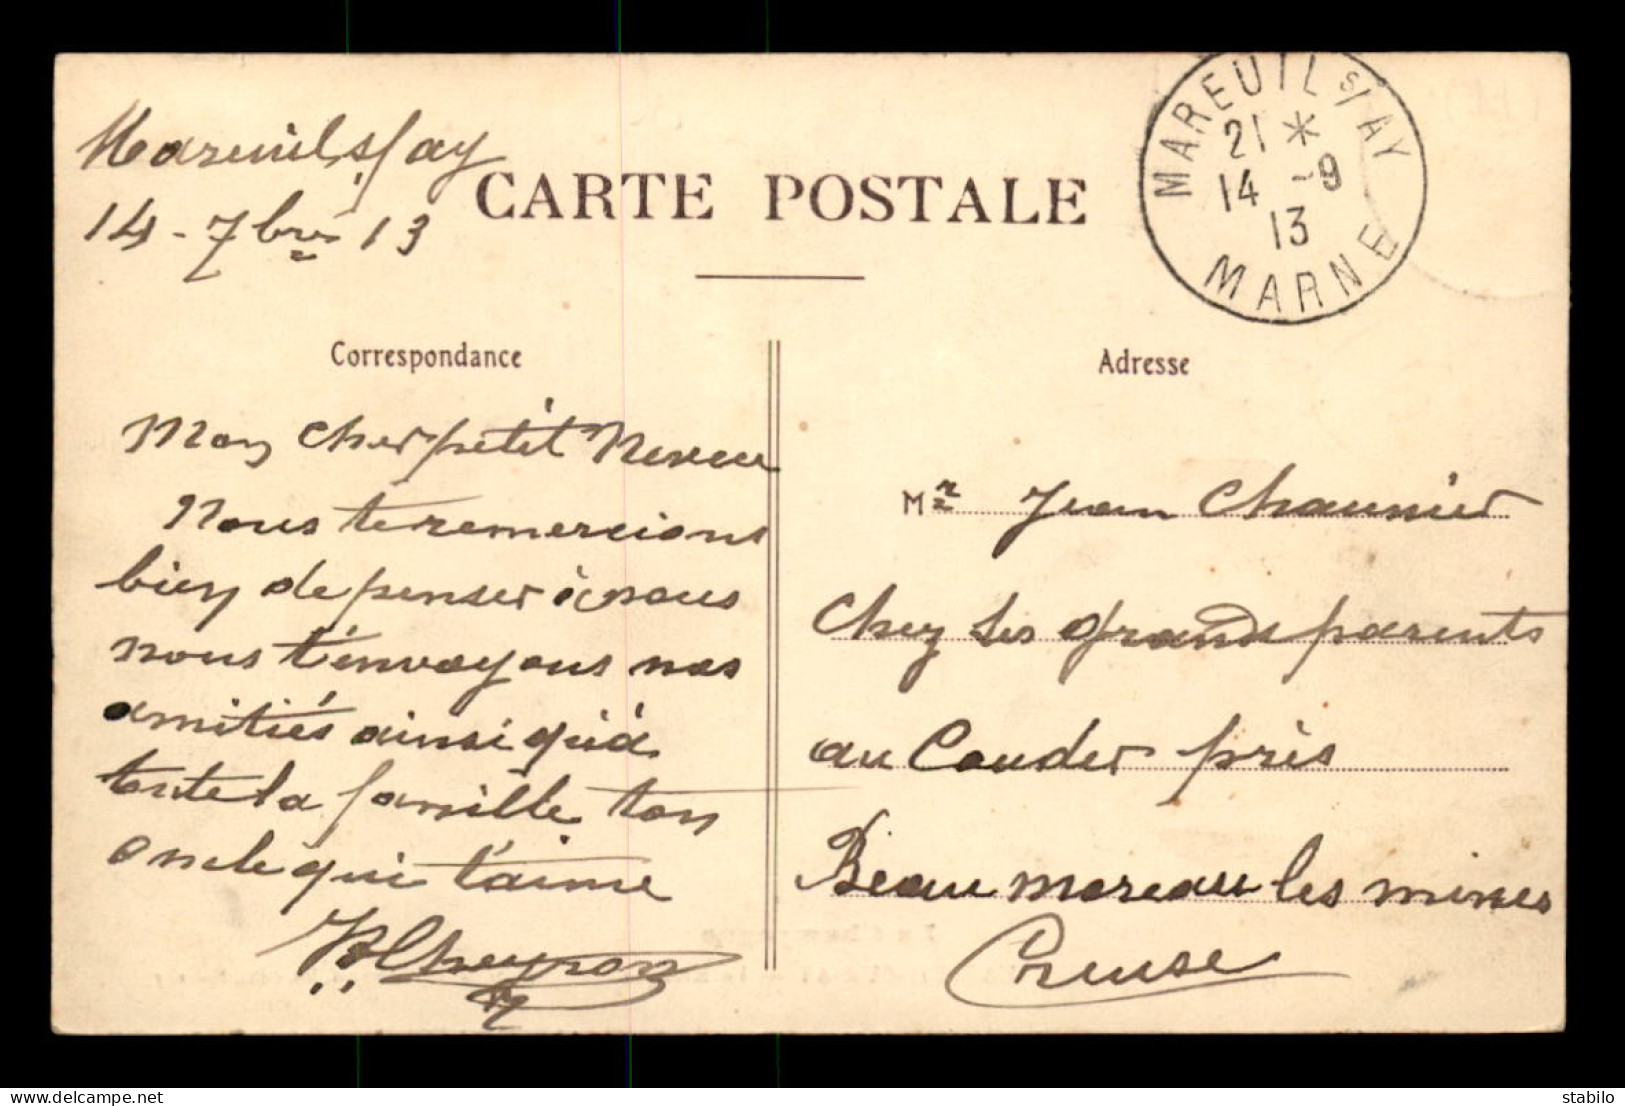 Mareuil s/ay
14 - 7bre 13
CARTE POSTALE
MAREUIL s/ AY
21 *
14 -9
13
MARNE
Correspondance
Mon cher petit Neveu
Nous te remercions
bien de penser à nous
nous t'envoyons nos
amitiés ainsi qu'à
toute la famille ton
oncle qui t'aime
Cheyron
Adresse
Mr Jean Chaunier
Chez les grands parents
au Couder près
Beaumoreau les mines
Creuse
delcampe.net
stabilo